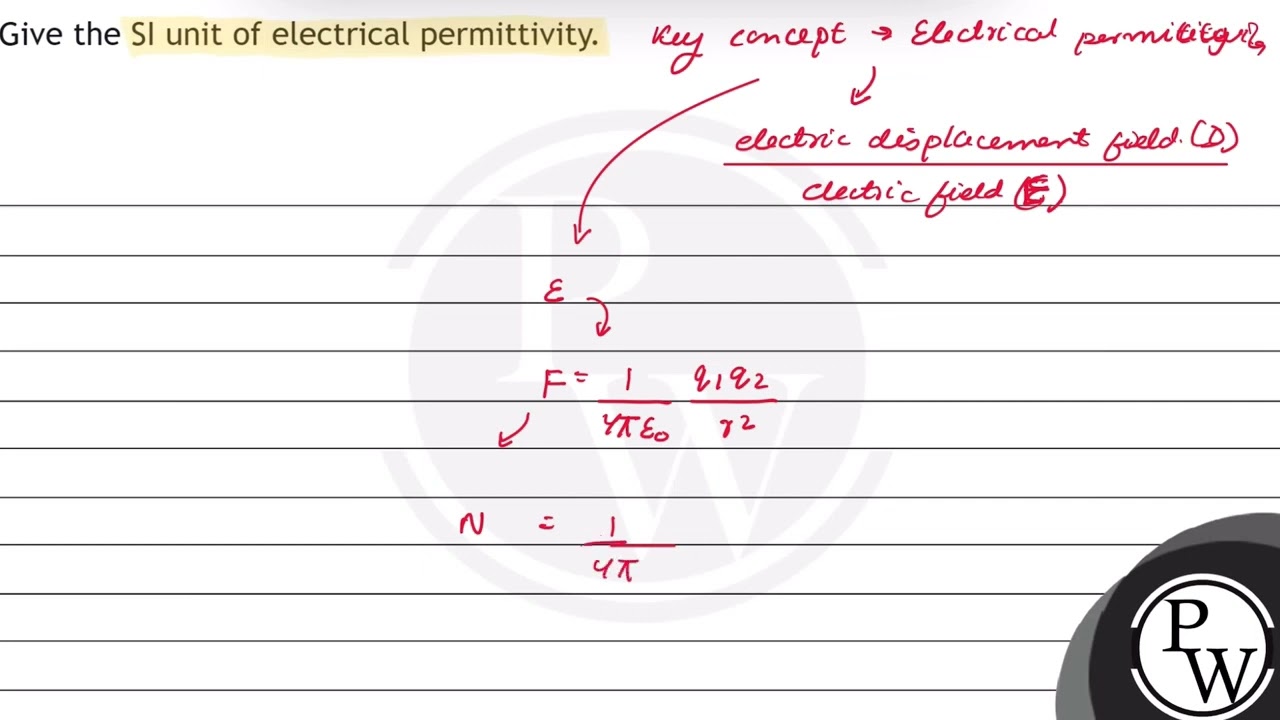 Give the SI unit of electrical permittivity.
Key concept → Electrical
electric displacement field. (D)
electric field (E)
ε
F = 1 / 4πε₀ q₁q₂ / r²
N = 1 / 4π
PW
PW